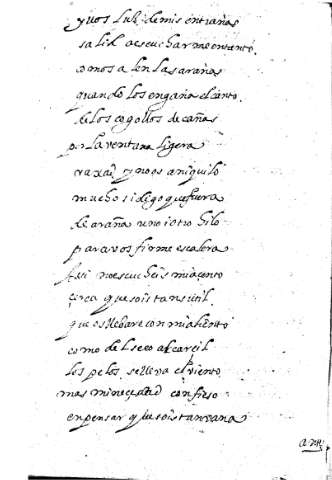 y vos luz de mis entrañas
salid a escucharme en tanto
como salen las arañas
quando los engaña el canto
de los cogollos de cañas
por la ventana ligera
y no os aniquilo
mucho si digo que fuera
de araña uno i otro hilo
para vos firme escalera
no escucheis mi acento
çerca que sois tan sutil
que os llebare con mi aliento
como del seco
los pelos se lleva el viento
mas mi neçedad confieso
en pensar que sois tan vana